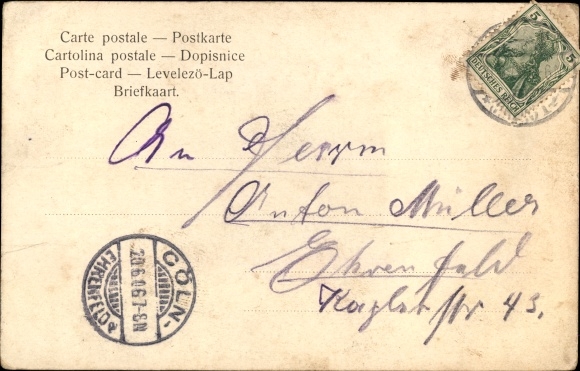 Carte postale — Postkarte
Cartolina postale — Dopisnice
Post-card — Levelező-Lap
Briefkaart.
5
5
DEUTSCHES REICH
An Herrn
Anton Müller
Ehrenfeld
str 43.
CÖLN-
20.6.06.7-8N
EHRENFELD